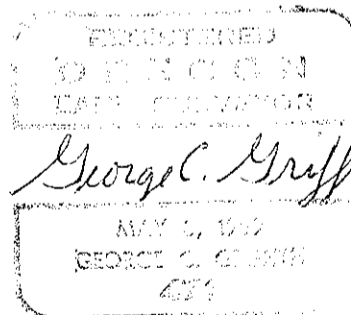 REGISTERED
OREGON
LAND SURVEYOR
George C. Griff
MAY
GEORGE C.